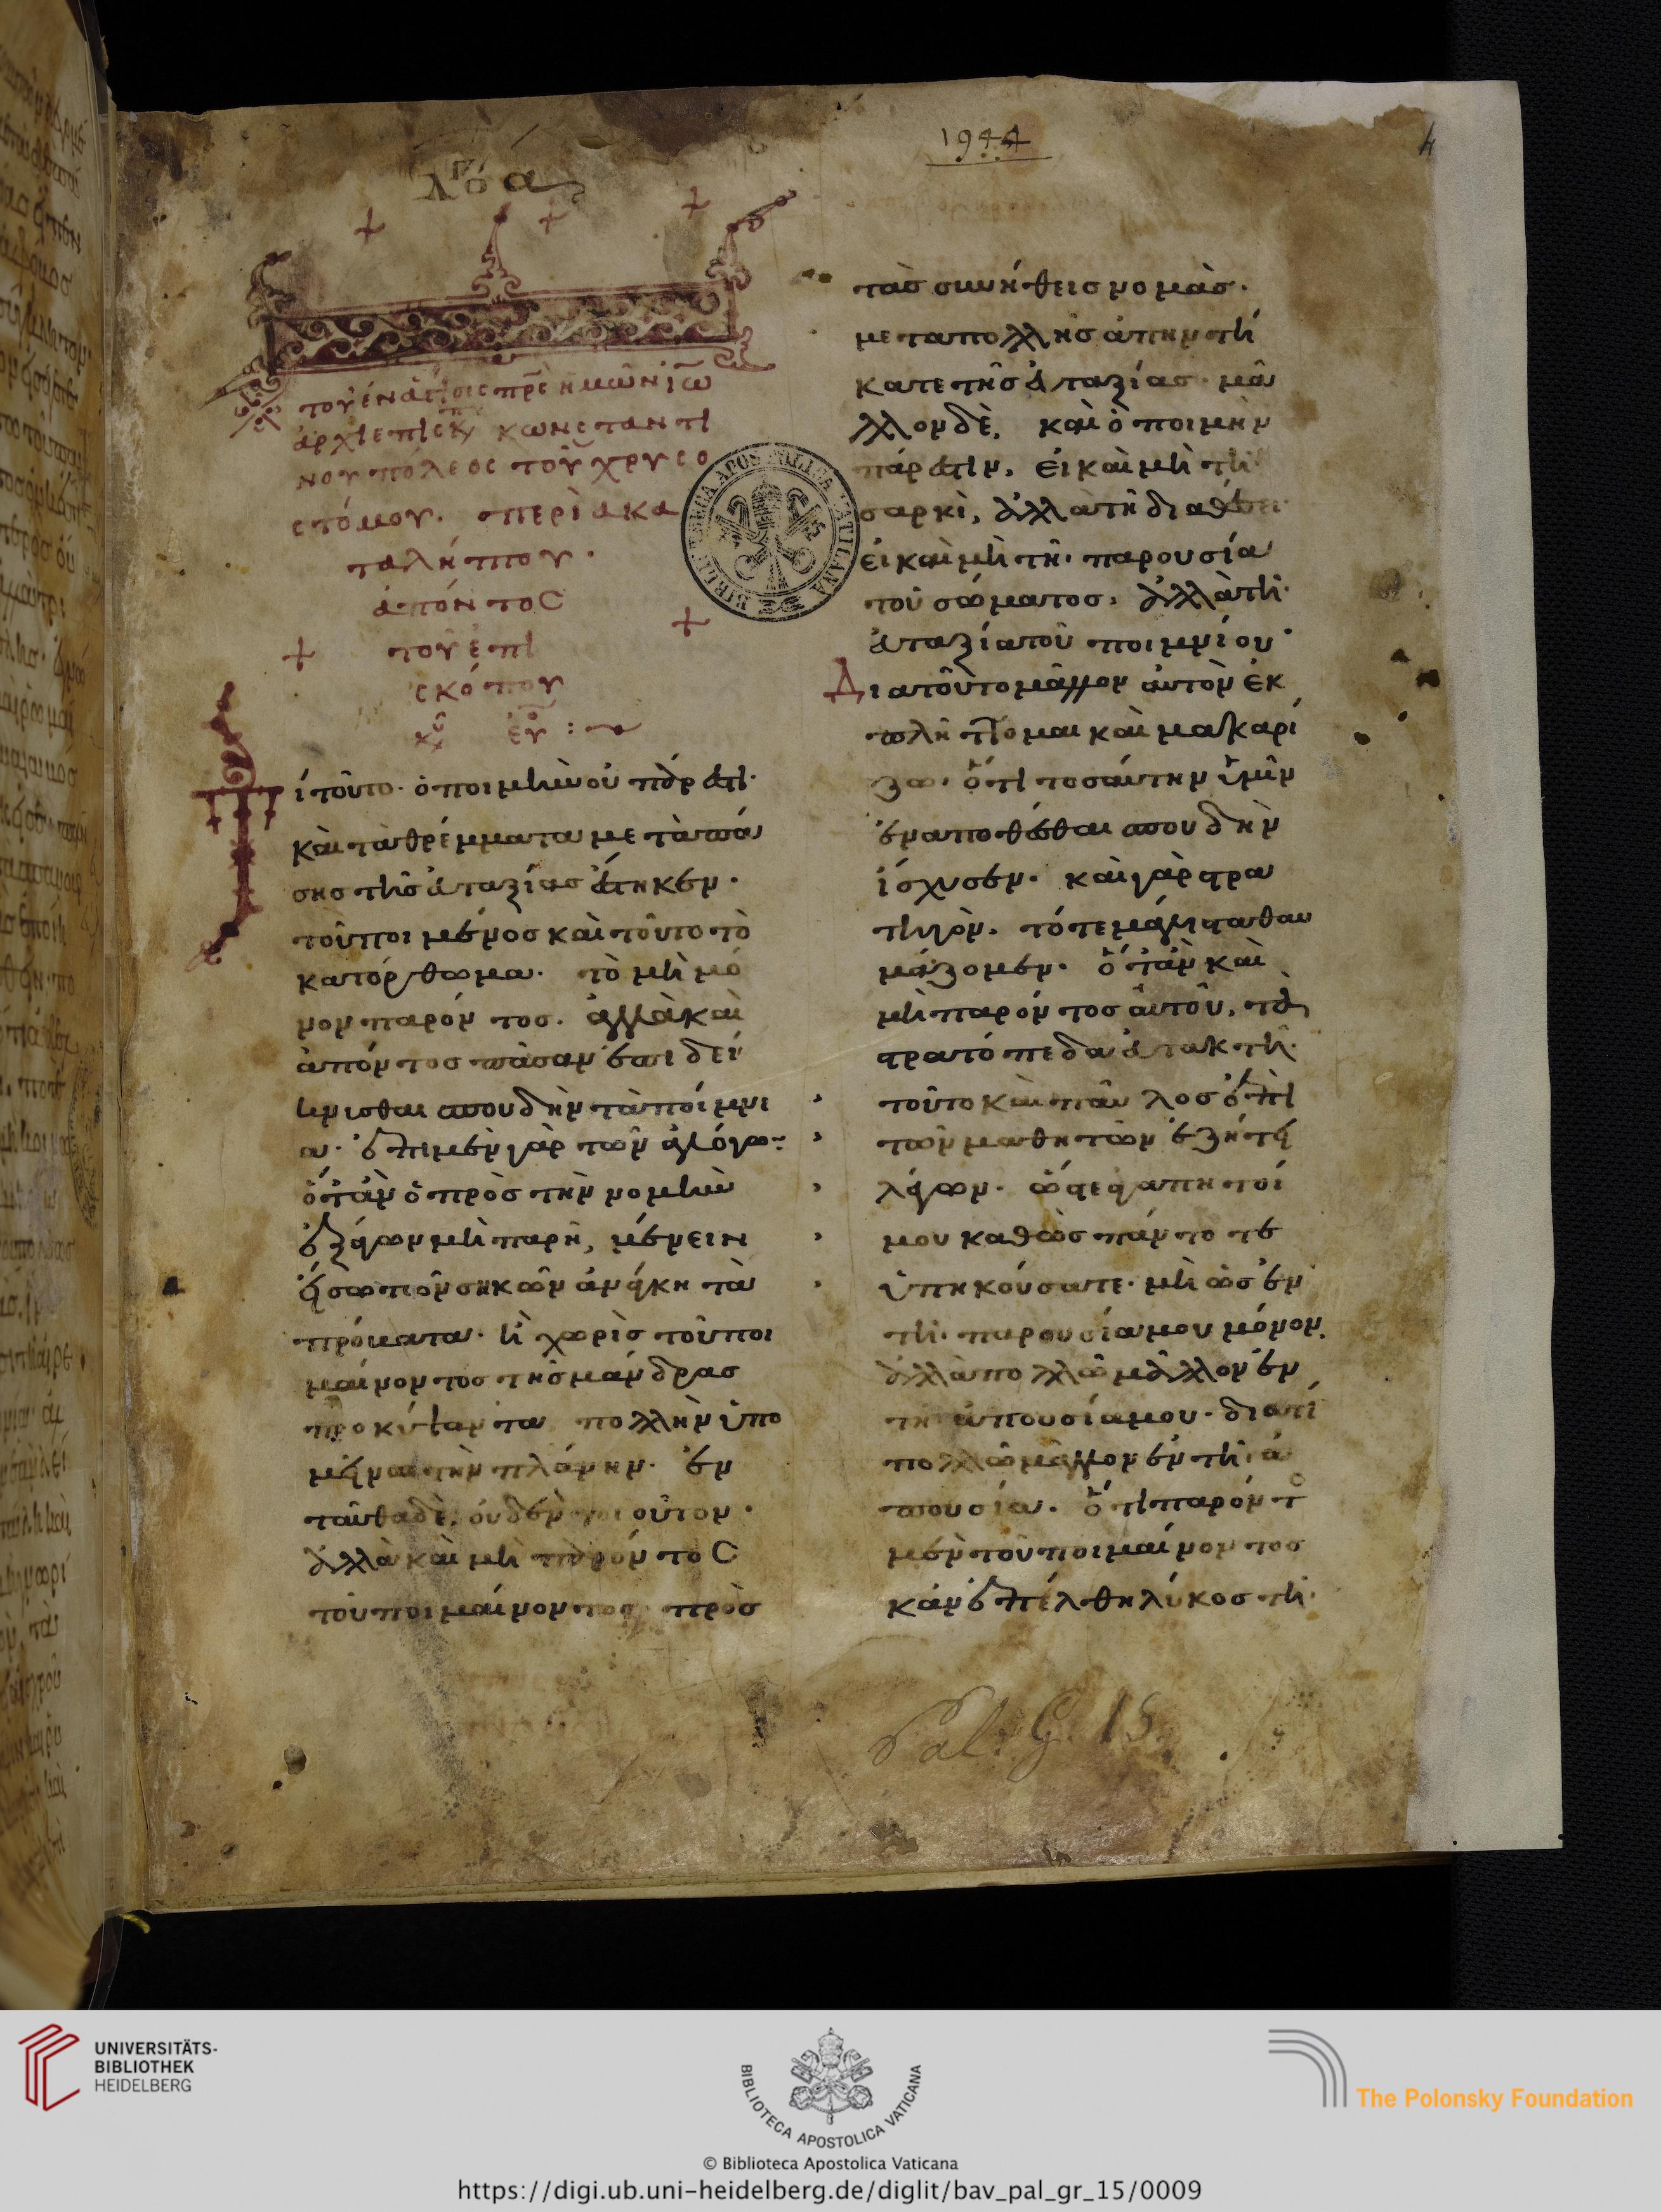 λόγος α
1944
4
τοῦ ἐν ἁγίοις πρς ἡμῶν ἰω
ἀρχιεπισκ κωνσταντι
νουπόλεος τοῦ χρυσο
στόμου. περὶ ἀκα
ταλήπτου.
ἀπόντος
τοῦ ἐπι
σκόπου
Τί τοῦτο. ὁ ποιμὴν οὐ πάρεστι.
καὶ τὰ θρέμματα μετὰ πά
σης τῆς εὐταξίας ἕστηκεν.
τοῦ ποιμένος καὶ τοῦτο τὸ
κατόρθωμα. τὸ μὴ μό
νον παρόντος. ἀλλὰ καὶ
ἀπόντος πᾶσαν ἐπιδεί
κνισθαι σπουδὴν τὰ ποίμνι
α. ἐπὶ μὲν γὰρ τῶν ἀλόγω
ὅταν ὁ πρὸς τὴν νομὴν
ἐξάγων μὴ παρῆ, μένειν
ἔσω τῶν σηκῶν ἀνάγκη τὰ
πρόβατα. ἢ χωρὶς τοῦ ποι
μαίνοντος τῆς μάνδρας
προκύψαντα πολλὴν ὑπο
μεῖναι τὴν πλάνην. ἐν
ταῦθα δὲ, οὐδὲν τοιοῦτον.
ἀλλὰ καὶ μὴ παρόντος
τοῦ ποιμαίνοντος πρὸς
τὰς συνήθεις νομὰς.
μετα πολλῆς ἀπηντή
κατε τῆς εὐταξίας. μᾶ
λλον δὲ, καὶ ὁ ποιμὴν
πάρεστιν, εἰ καὶ μὴ τῆ
σαρκὶ, ἀλλὰ τῆ διαθέσει
εἰ καὶ μὴ τῆ παρουσία
τοῦ σώματος, ἀλλὰ τῆ
εὐταξία τοῦ ποιμνίου.
Διατοῦτο μᾶλλον αὐτὸν ἐκ
πλήττομαι καὶ μακαρί
ζω. ὅτι τοσαύτην ὑμῖν
ἐναποθέσθαι σπουδὴν
ἴσχυσεν. καὶ γὰρ στρα
τηγὸν. τότε μάλιστα θαυ
μάζομεν. ὅταν καὶ
μὴ παρόντος αὐτοῦ, τὰ
στρατόπεδα εὐτακτῆ.
τοῦτο καὶ παῦλος ἐπὶ
τῶν μαθητῶν ἐζήτει
λέγων. ὥστε ἀγαπητοί
μου καθὼς πάντοτε
ὑπηκούσατε. μὴ ὡς ἐν
τῆ παρουσία μου μόνον.
ἀλλὰ πολλῶ μᾶλλον ἐν
τῆ ἀπουσία μου. διατί
πολλῶ μᾶλλον ἐν τῆ ἀ
πουσία. ὅτι παρόντο
μὲν τοῦ ποιμαίνοντος
κἂν ἐπέλθη λύκος τῆ
Pal. G. 15
BIBLIOTECA APOSTOLICA VATICANA
UNIVERSITÄTS-
BIBLIOTHEK
HEIDELBERG
BIBLIOTECA APOSTOLICA VATICANA
The Polonsky Foundation
© Biblioteca Apostolica Vaticana
https://digi.ub.uni-heidelberg.de/diglit/bav_pal_gr_15/0009